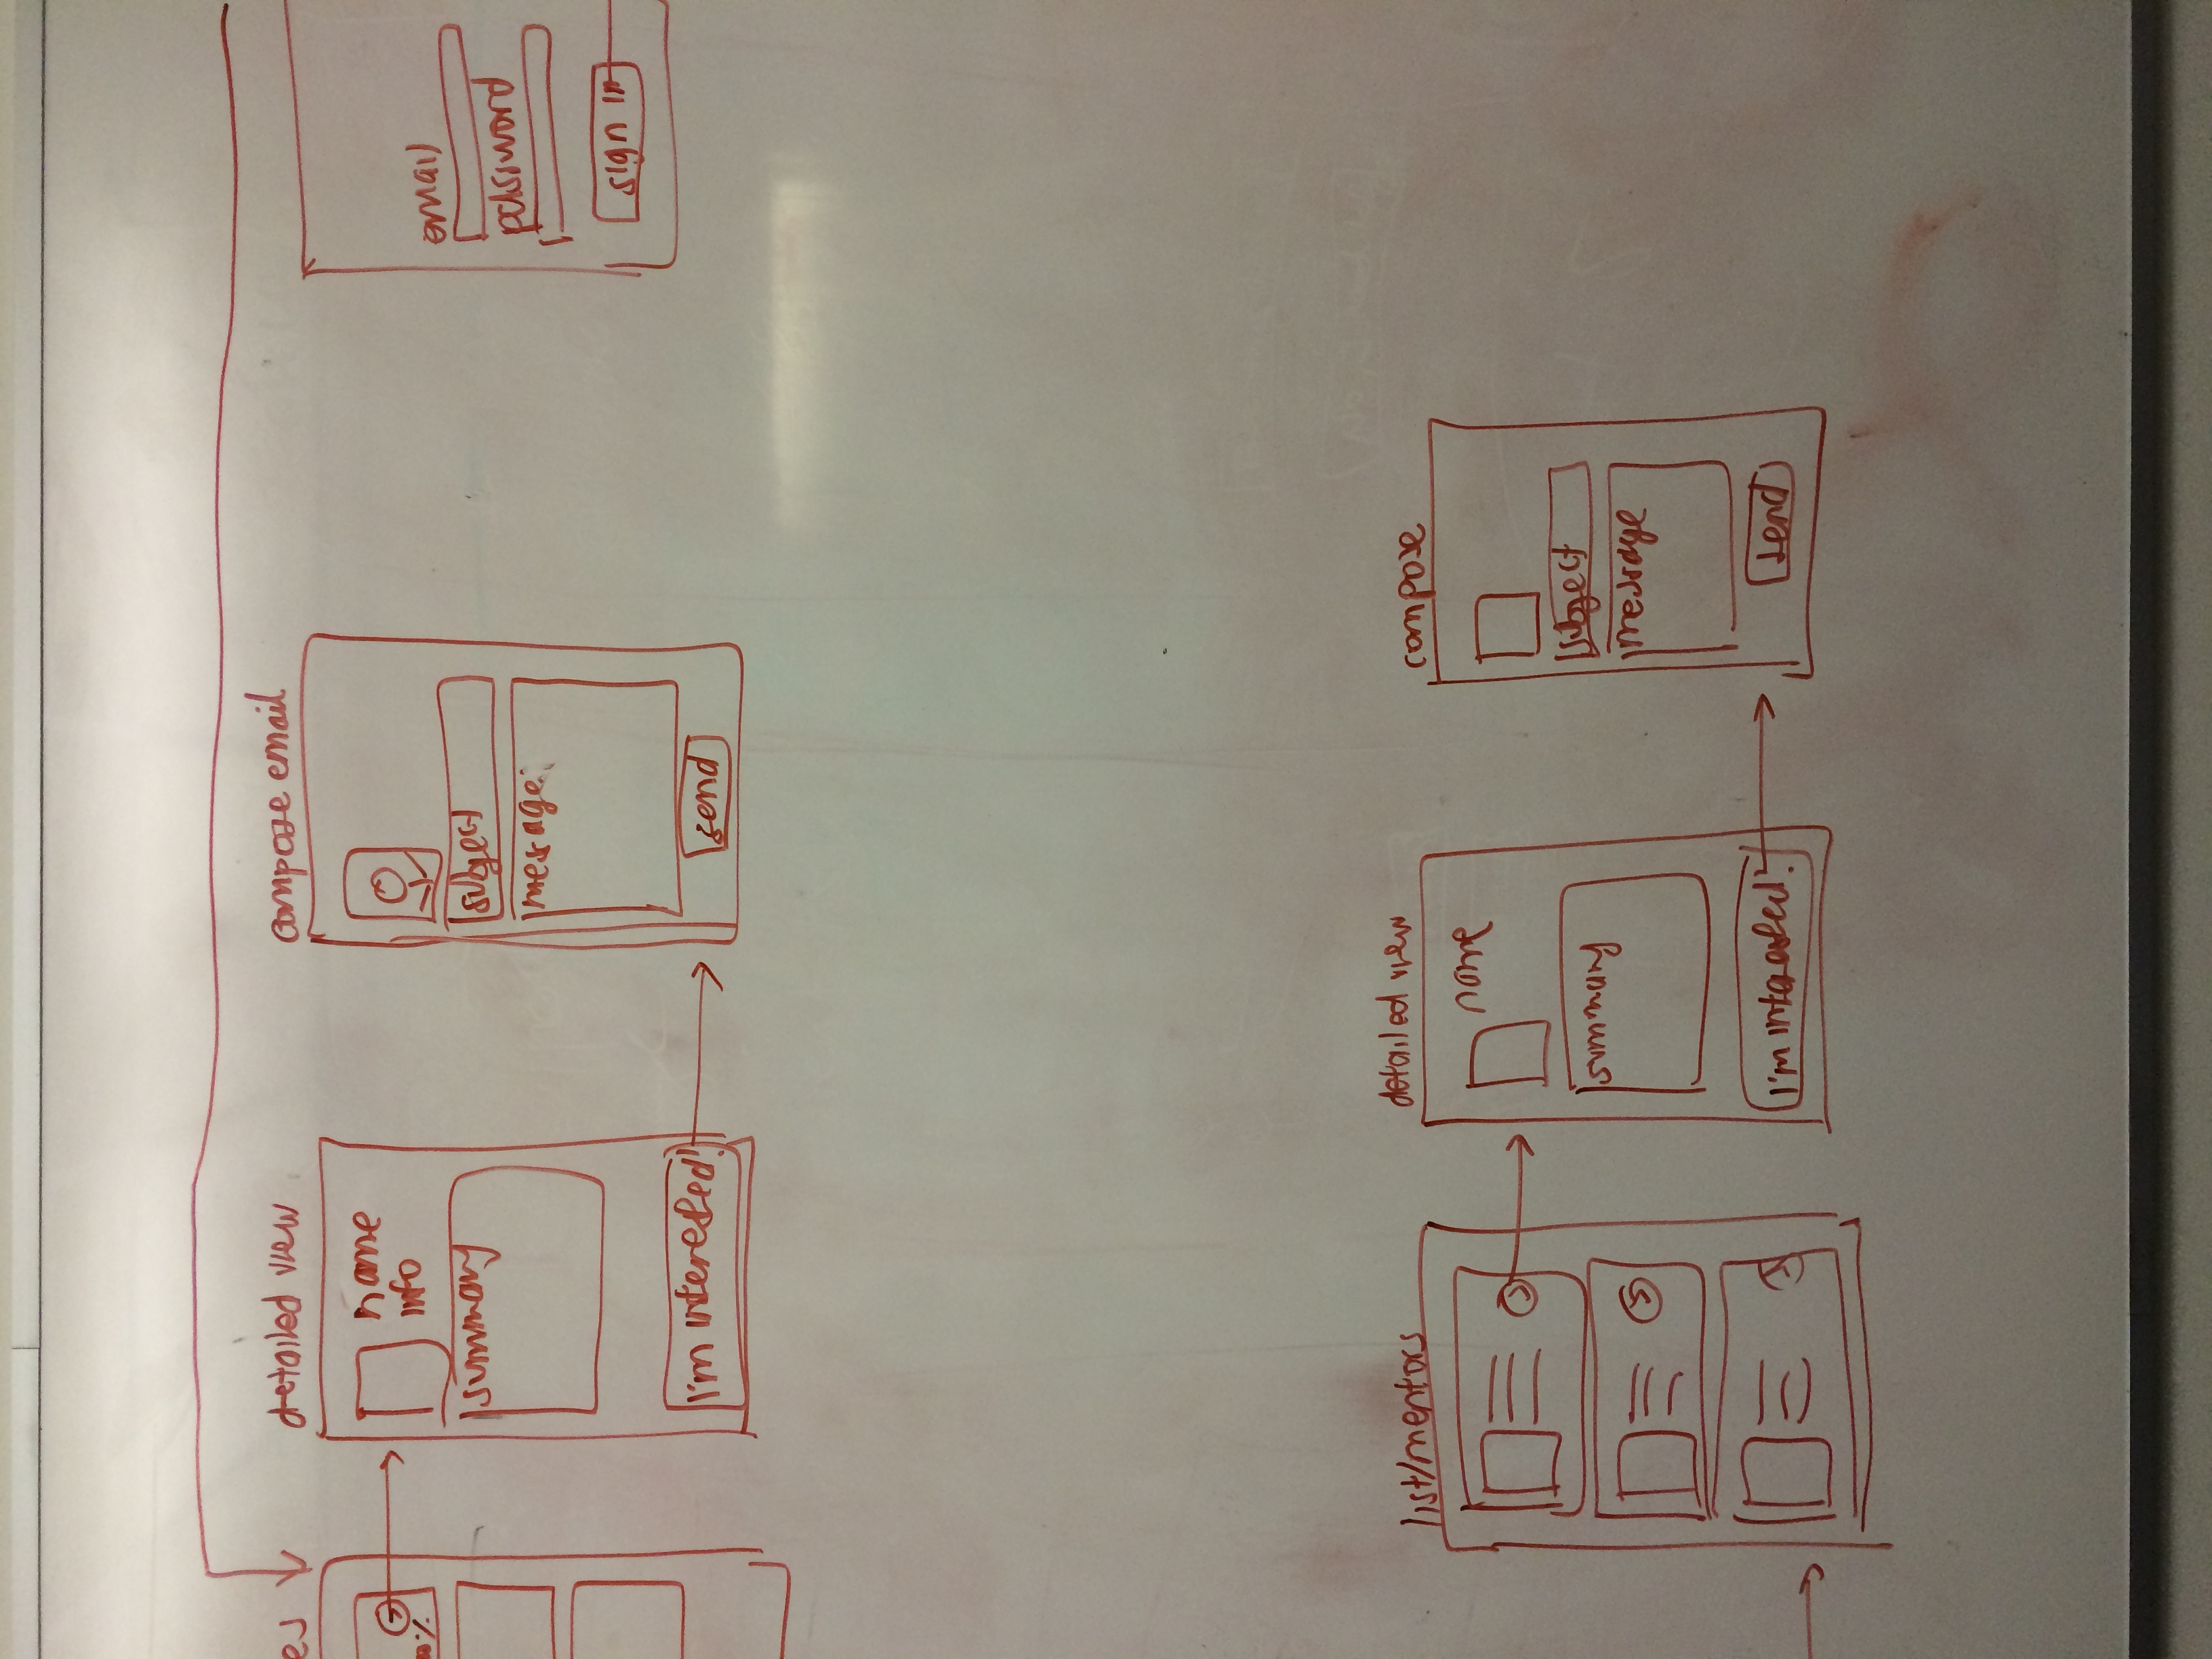 detailed view
compose email
name
info
summary
I'm interested!
subject
message:
send
email
password
sign in
list/mentors
detailed view
name
summary
I'm interested!
compose
subject
message
send